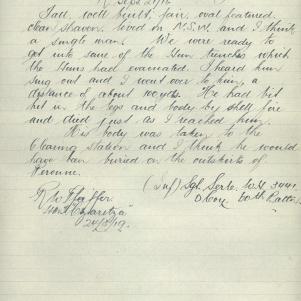 Tall, well built, fair, oval featured
clean shaven, lived in N.S.W. and I think
a single man. We were ready to
get into some of the Hun trenches which
the Huns had evacuated. I heard him
sing out and I went over to him, a
distance of about 100 yds. He had bit
hit in the legs and body by shell fire
and died just as I reached him.
His body was taken to the
Clearing station and I think he would
have been buried on the outskirts of
Peronne.
(Inf) Sgt.
D Coy.
R W Pfeiffer